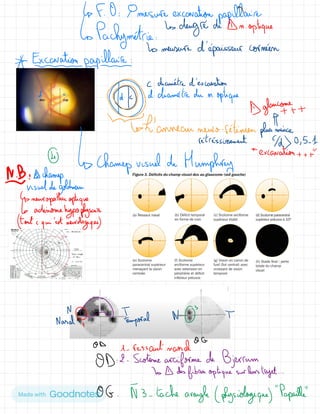 ↳ F O : mesure excavation papillaire
↳ P O ↳ degré de Δ n optique
↳ Pachymétrie :
↳ mesure d'épaisseur cornéen
* Excavation papillaire :
c diamètre d'excavation
d diamètre du n optique
d c
Δ glaucome +++
↳ L'anneau neuro-rétinien plus mince
rétrécissement c/d > 0,5-1
excavation +++
4)
↳ Champs visuel de Humphrey
N.B : Δ champ
visuel de goldman
↳ neuropathie optique
↳ adénome hypophysaire
(tout c qui est neurologique)
Figure 3. Déficits du champ visuel dus au glaucome (œil gauche)
(a) Ressaut nasal
(b) Déficit temporal en forme de coin
(c) Scotome arciforme supérieur établi
(d) Scotome paracentral supérieur précoce à 10°
(e) Scotome paracentral supérieur menaçant la vision centrale
(f) Scotome arciforme supérieur avec extension en périphérie et déficit inférieur précoce
(g) Vision en canon de fusil (îlot central) avec croissant de vision temporale
(h) Stade final : perte totale du champ visuel
N T N T
Nasal Temporal
OD OG
1- ressaut nasal
OD 2- Scotome arciforme de Bjerrum
↳ Δ des fibres optique sur leurs trajet...
OG N 3- tache aveugle (physiologique) "Papille"
Made with Goodnotes